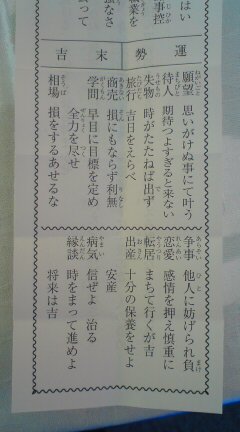 はい
事控
職業を
強なさ
去って
運勢 末吉
願望 思いがけぬ事にて叶う
待人 期待つよすぎると来ない
失物 時がたたねば出ず
旅行 吉日をえらべ
商売 損にもならず利無
学問 早目に目標を定め
全力を尽せ
相場 損をするあせるな
争事 他人に妨げられ負
恋愛 感情を押え慎重に
転居 まちて行くが吉
出産 十分の保養をせよ
安産
病気 信ぜよ 治る
縁談 時をまって進めよ
将来は吉